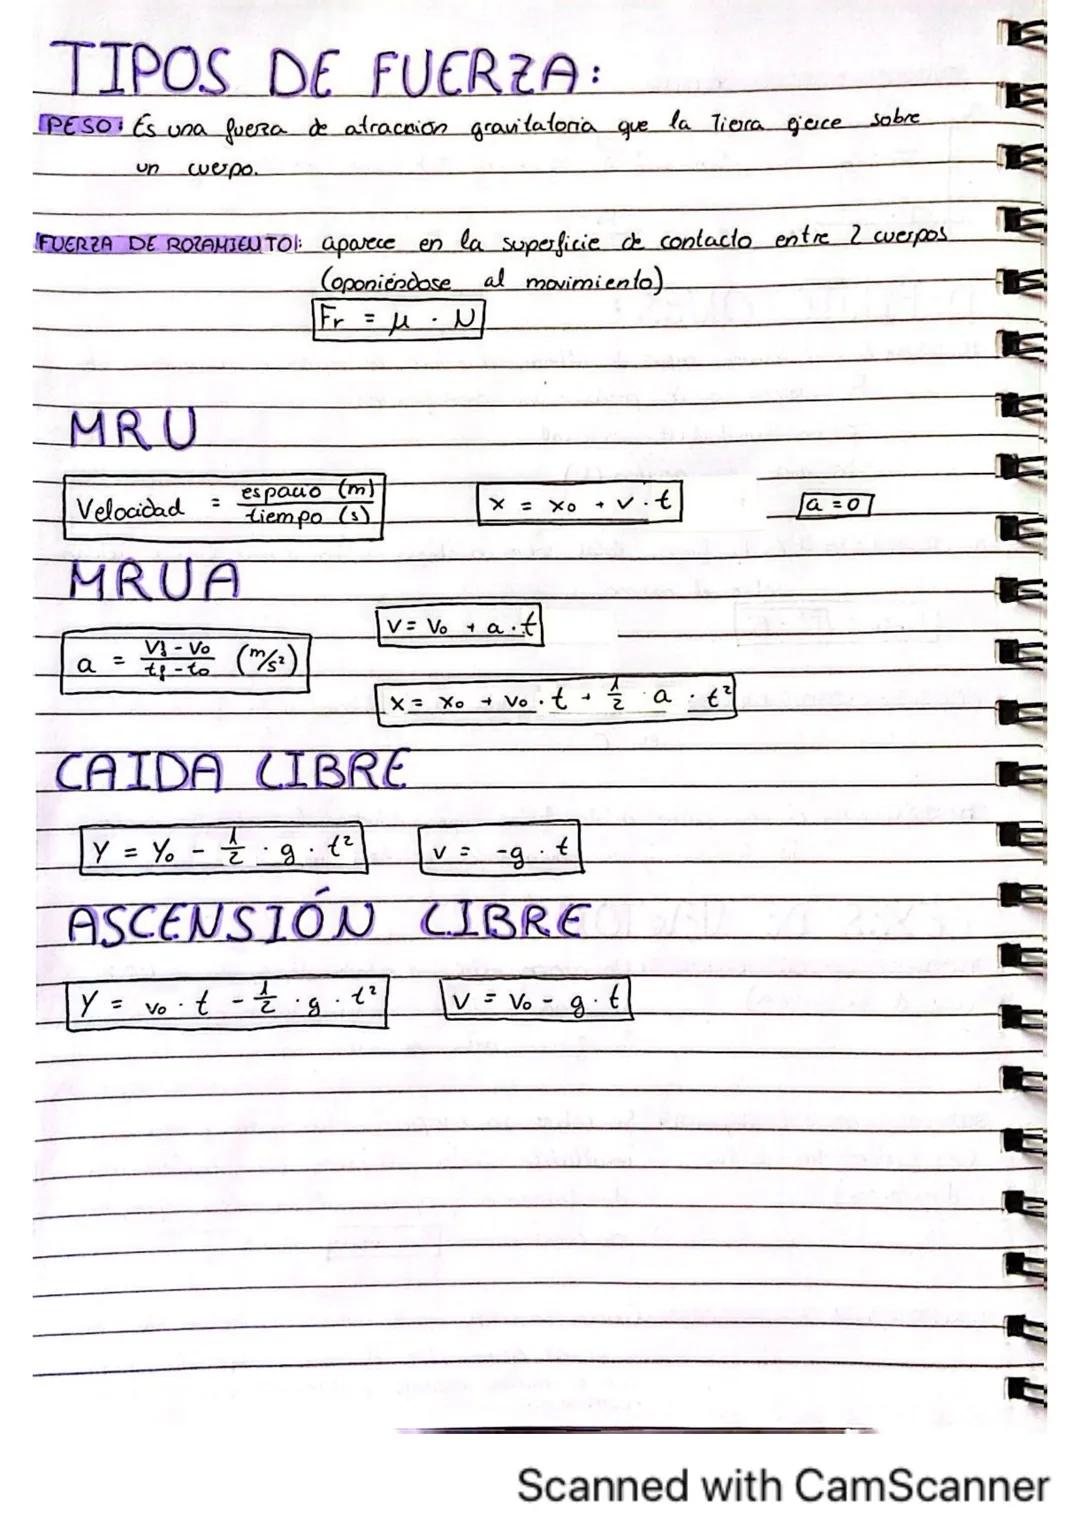 TIPOS DE FUERZA:
PESO: Es una fuerza de atracción gravitatoria que la Tierra ejerce sobre
un cuerpo.
FUERZA DE ROZAMIENTO: aparece en la superficie de contacto entre 2 cuerpos
(oponiéndose al movimiento)
Fr = μ · N
MRU
Velocidad = espacio (m) / tiempo (s) x = x₀ + v · t a = 0
MRUA
v = v₀ + a · t
a = vf - v₀ / tf - t₀ (m/s²)
x = x₀ + v₀ · t + 1/2 · a · t²
CAIDA LIBRE
Y = Y₀ - 1/2 · g · t² v = -g · t
ASCENSIÓN LIBRE
Y = v₀ · t - 1/2 · g · t² v = v₀ - g · t
Scanned with CamScanner